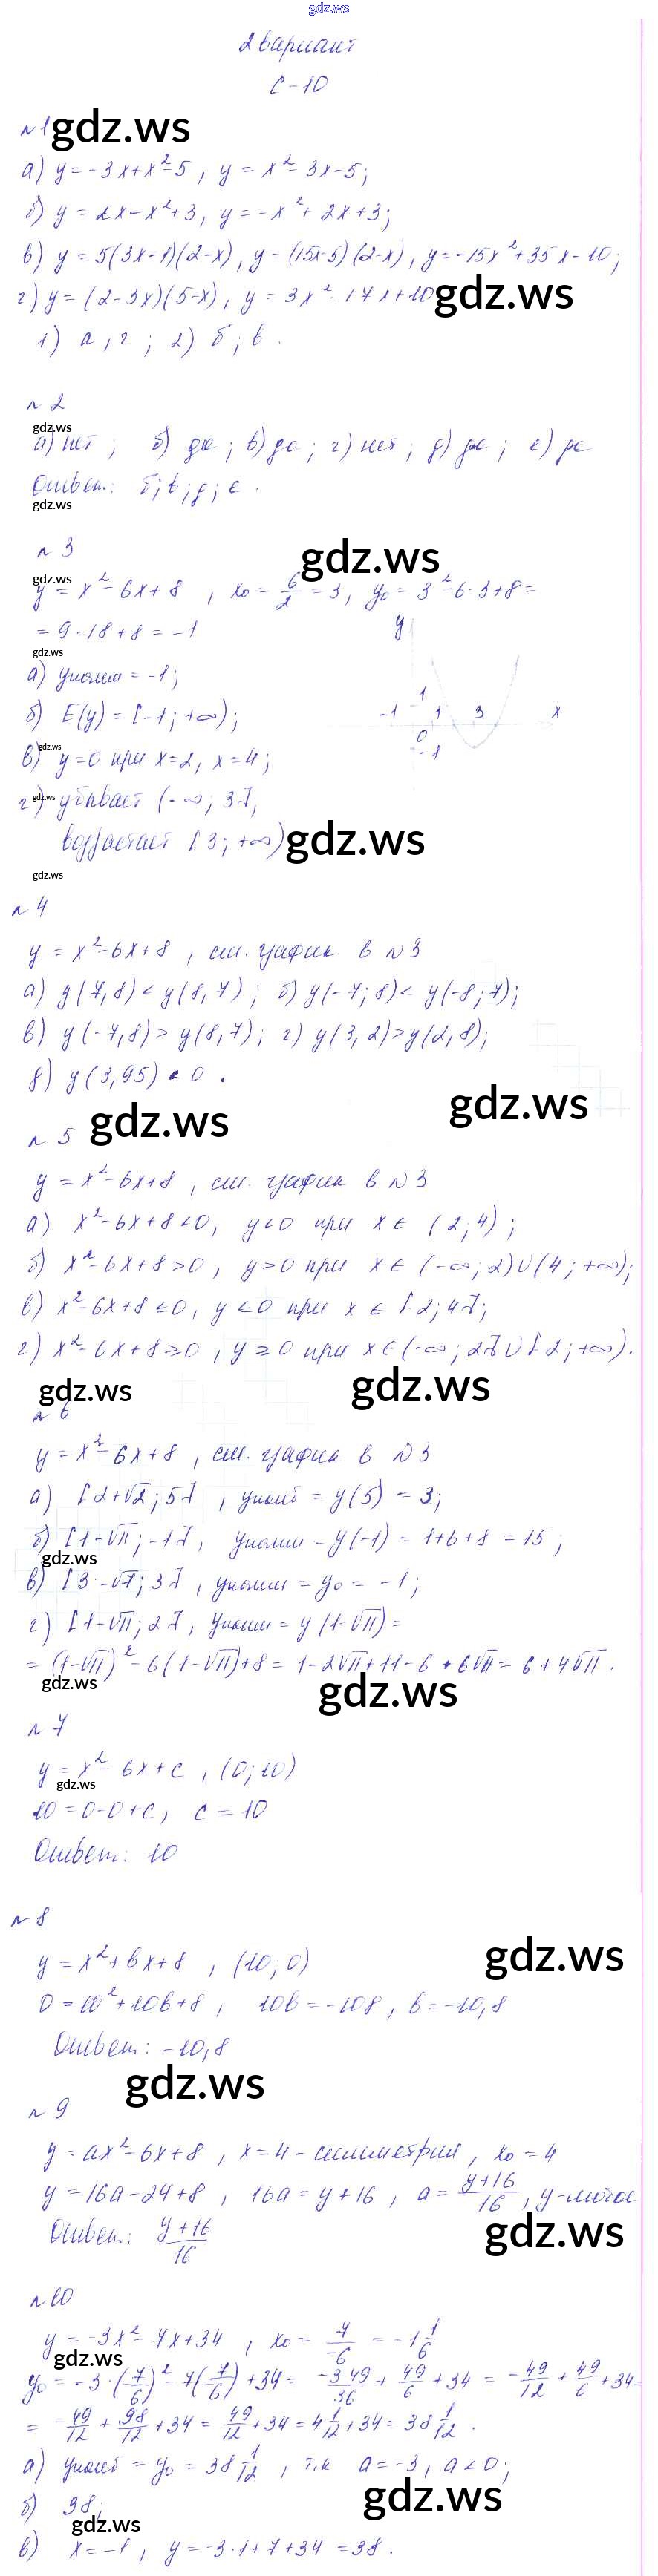 gdz.ws
2 вариант
С-10
№1 gdz.ws
а) y = -3x+x²-5, y = x²-3x-5;
б) y = 2x-x²+3, y = -x²+2x+3;
в) y = 5(3x-1)(2-x), y = (15x-5)(2-x), y = -15x²+35x-10;
г) y = (2-3x)(5-x), y = 3x²-17x+10 gdz.ws
1) а, г; 2) б; в.
№2
gdz.ws
а) нет; б) да; в) да; г) нет; д) да; е) да
Ответ: б; в; д; е.
gdz.ws
№3
gdz.ws
gdz.ws
y = x²-6x+8, x₀ = 6/2 = 3, y₀ = 3²-6·3+8=
= 9-18+8 = -1
y
gdz.ws
а) yнаим = -1;
б) E(y) = [-1; +∞);
-1 1 1 3 x
0
-1
gdz.ws
в) y=0 при x=2, x=4;
gdz.ws
г) убывает (-∞; 3];
возрастает [3; +∞) gdz.ws
gdz.ws
№4
y = x²-6x+8, см. график в №3
а) y(7,8) < y(8,7); б) y(-7;8) < y(-8;7);
в) y(-7,8) > y(8,7); г) y(3,2) > y(2,8);
д) y(3,95) < 0.
gdz.ws
gdz.ws
№5
y = x²-6x+8, см. график в №3
а) x²-6x+8<0, y<0 при x∈(2;4);
б) x²-6x+8>0, y>0 при x∈(-∞;2)∪(4;+∞);
в) x²-6x+8≤0, y≤0 при x∈[2;4];
г) x²-6x+8≥0, y≥0 при x∈(-∞;2]∪[2;+∞).
gdz.ws gdz.ws
№6
y = x²-6x+8, см. график в №3
а) [2+√2; 5], yнаиб = y(5) = 3;
б) [1-√11; -1], yнаим = y(-1) = 1+6+8 = 15;
gdz.ws
в) [3-√7; 3], yнаим = y₀ = -1;
г) [1-√11; 2], yнаим = y(1-√11) =
= (1-√11)²-6(1-√11)+8 = 1-2√11+11-6+6√11 = 6+4√11.
gdz.ws gdz.ws
№7
y = x²-6x+c, (0;10)
gdz.ws
10 = 0-0+c, c = 10
Ответ: 10
№8
y = x²+bx+8, (10;0)
gdz.ws
0 = 10²+10b+8, 10b = -108, b = -10,8
Ответ: -10,8
gdz.ws
№9
y = ax²-6x+8, x=4 - симметрии, x₀ = 4
y = 16a-24+8, 16a = y+16, a = (y+16)/16, y-любое
gdz.ws
Ответ: (y+16)/16
№10
y = -3x²-7x+34, x₀ = 7/-6 = -1 1/6
gdz.ws
y₀ = -3·(7/6)²-7(7/6)+34 = -3·49/36 + 49/6 + 34 = -49/12 + 49/6 + 34=
= -49/12 + 98/12 + 34 = 49/12 + 34 = 4 1/12 + 34 = 38 1/12.
а) yнаиб = y₀ = 38 1/12, т.к a = -3, a<0;
gdz.ws
б) 38;
gdz.ws
в) x = -1, y = -3·1+7+34 = 38.